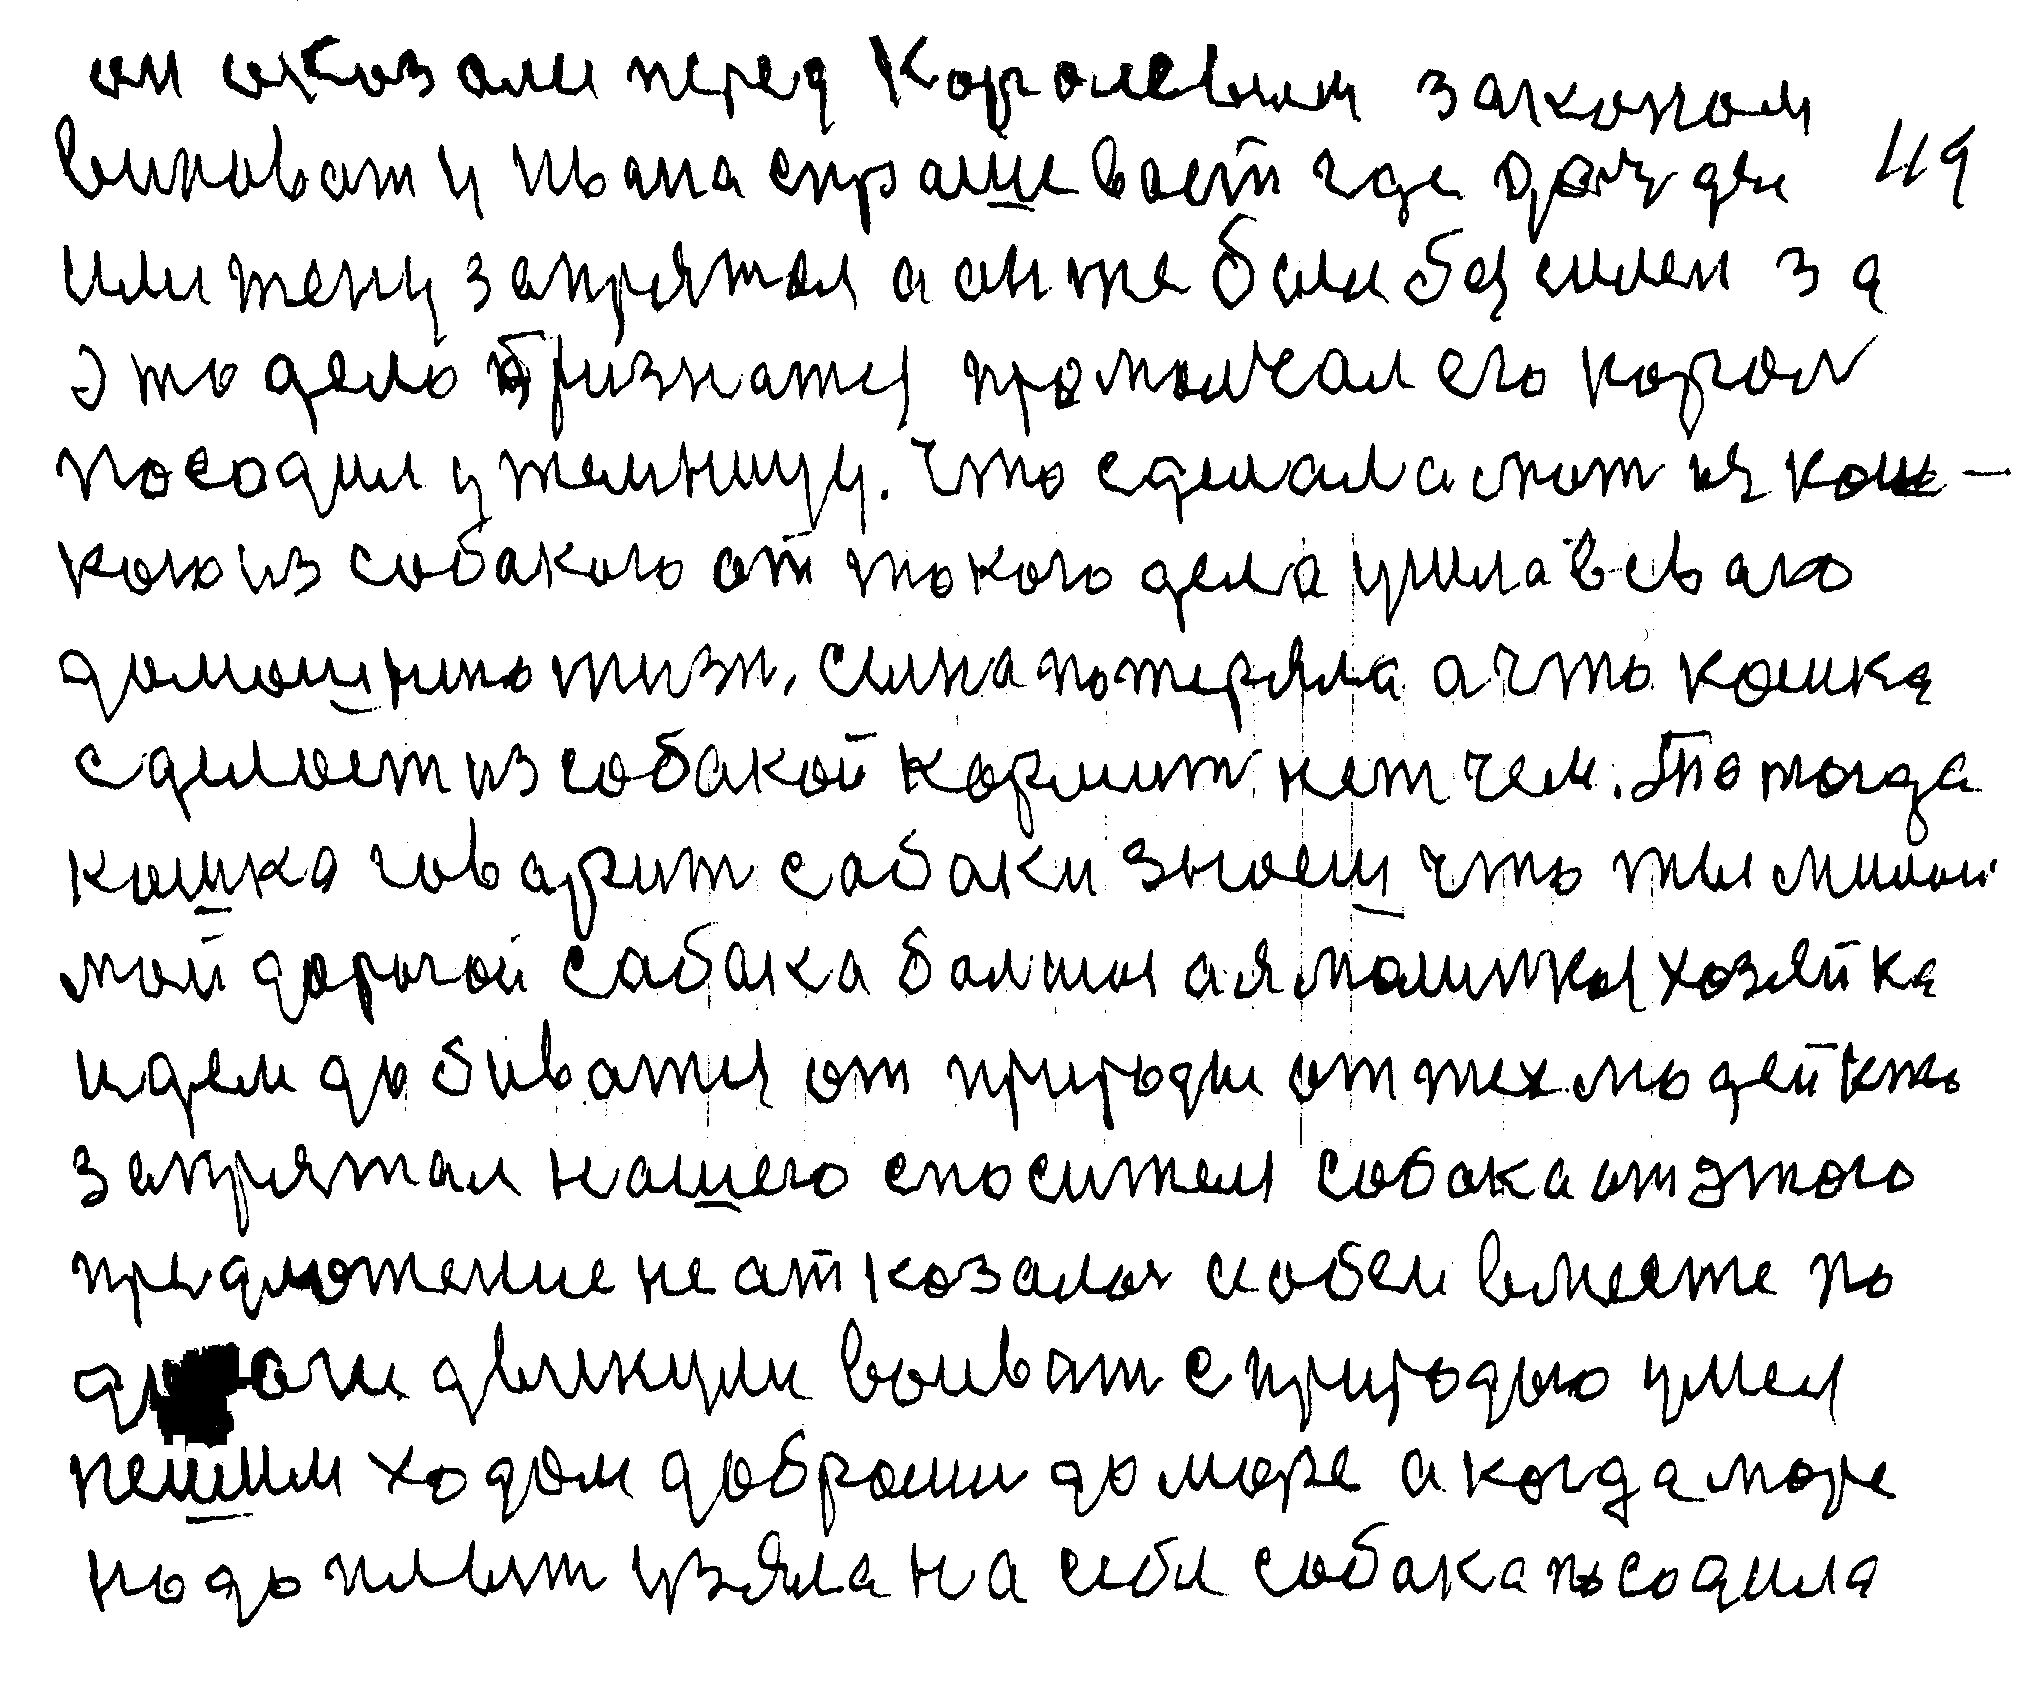 он оказали перед Королевым законом
виноват у Ивана спрашевает где дочь дел 49
или жену запрятал а он же были бессилен за
это дело признатся промолчал его корол
посодил у темницу. Что сделала мат из кош-
кою из собакою от токого дела ушла всьваю
домошнию жизн, сина потеряла а что кошка
сделоет из собакой кормит нет чем. То тогда
кошка говарит сабаки зноеш что ты милой
мой дорогой сабака болшая молитка хозяйка
идем добиватся от природы от тех людей кто
запрятал нашего спосителя собака от этого
предложение не атказалас и обеи вместе по
двинули воиват с природою умел
пешим ходом доброли до море а когда море
надо плыт узяла на себя собака посодила